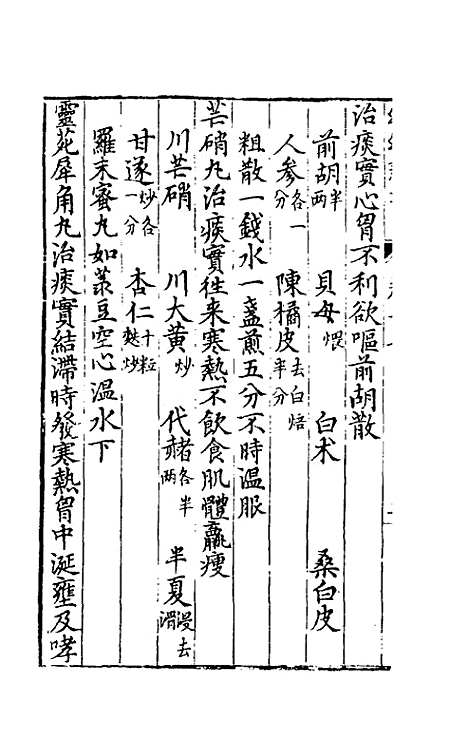 治痰實心胷不利欲嘔前胡散
前胡半兩 貝母煨 白术 桑白皮
人參各一分 陳橘皮去白焙半分
粗散一錢水一盞煎五分不時温服
芒硝丸治痰實徃来寒熱不飲食肌體羸瘦
川芒硝 川大黄炒 代赭各半兩 半夏湯去滑
甘遂炒各一分 杏仁十粒麩炒
羅末蜜丸如菉豆空心温水下
靈苑犀角丸治痰實結滯時發寒熱胷中涎壅及哮